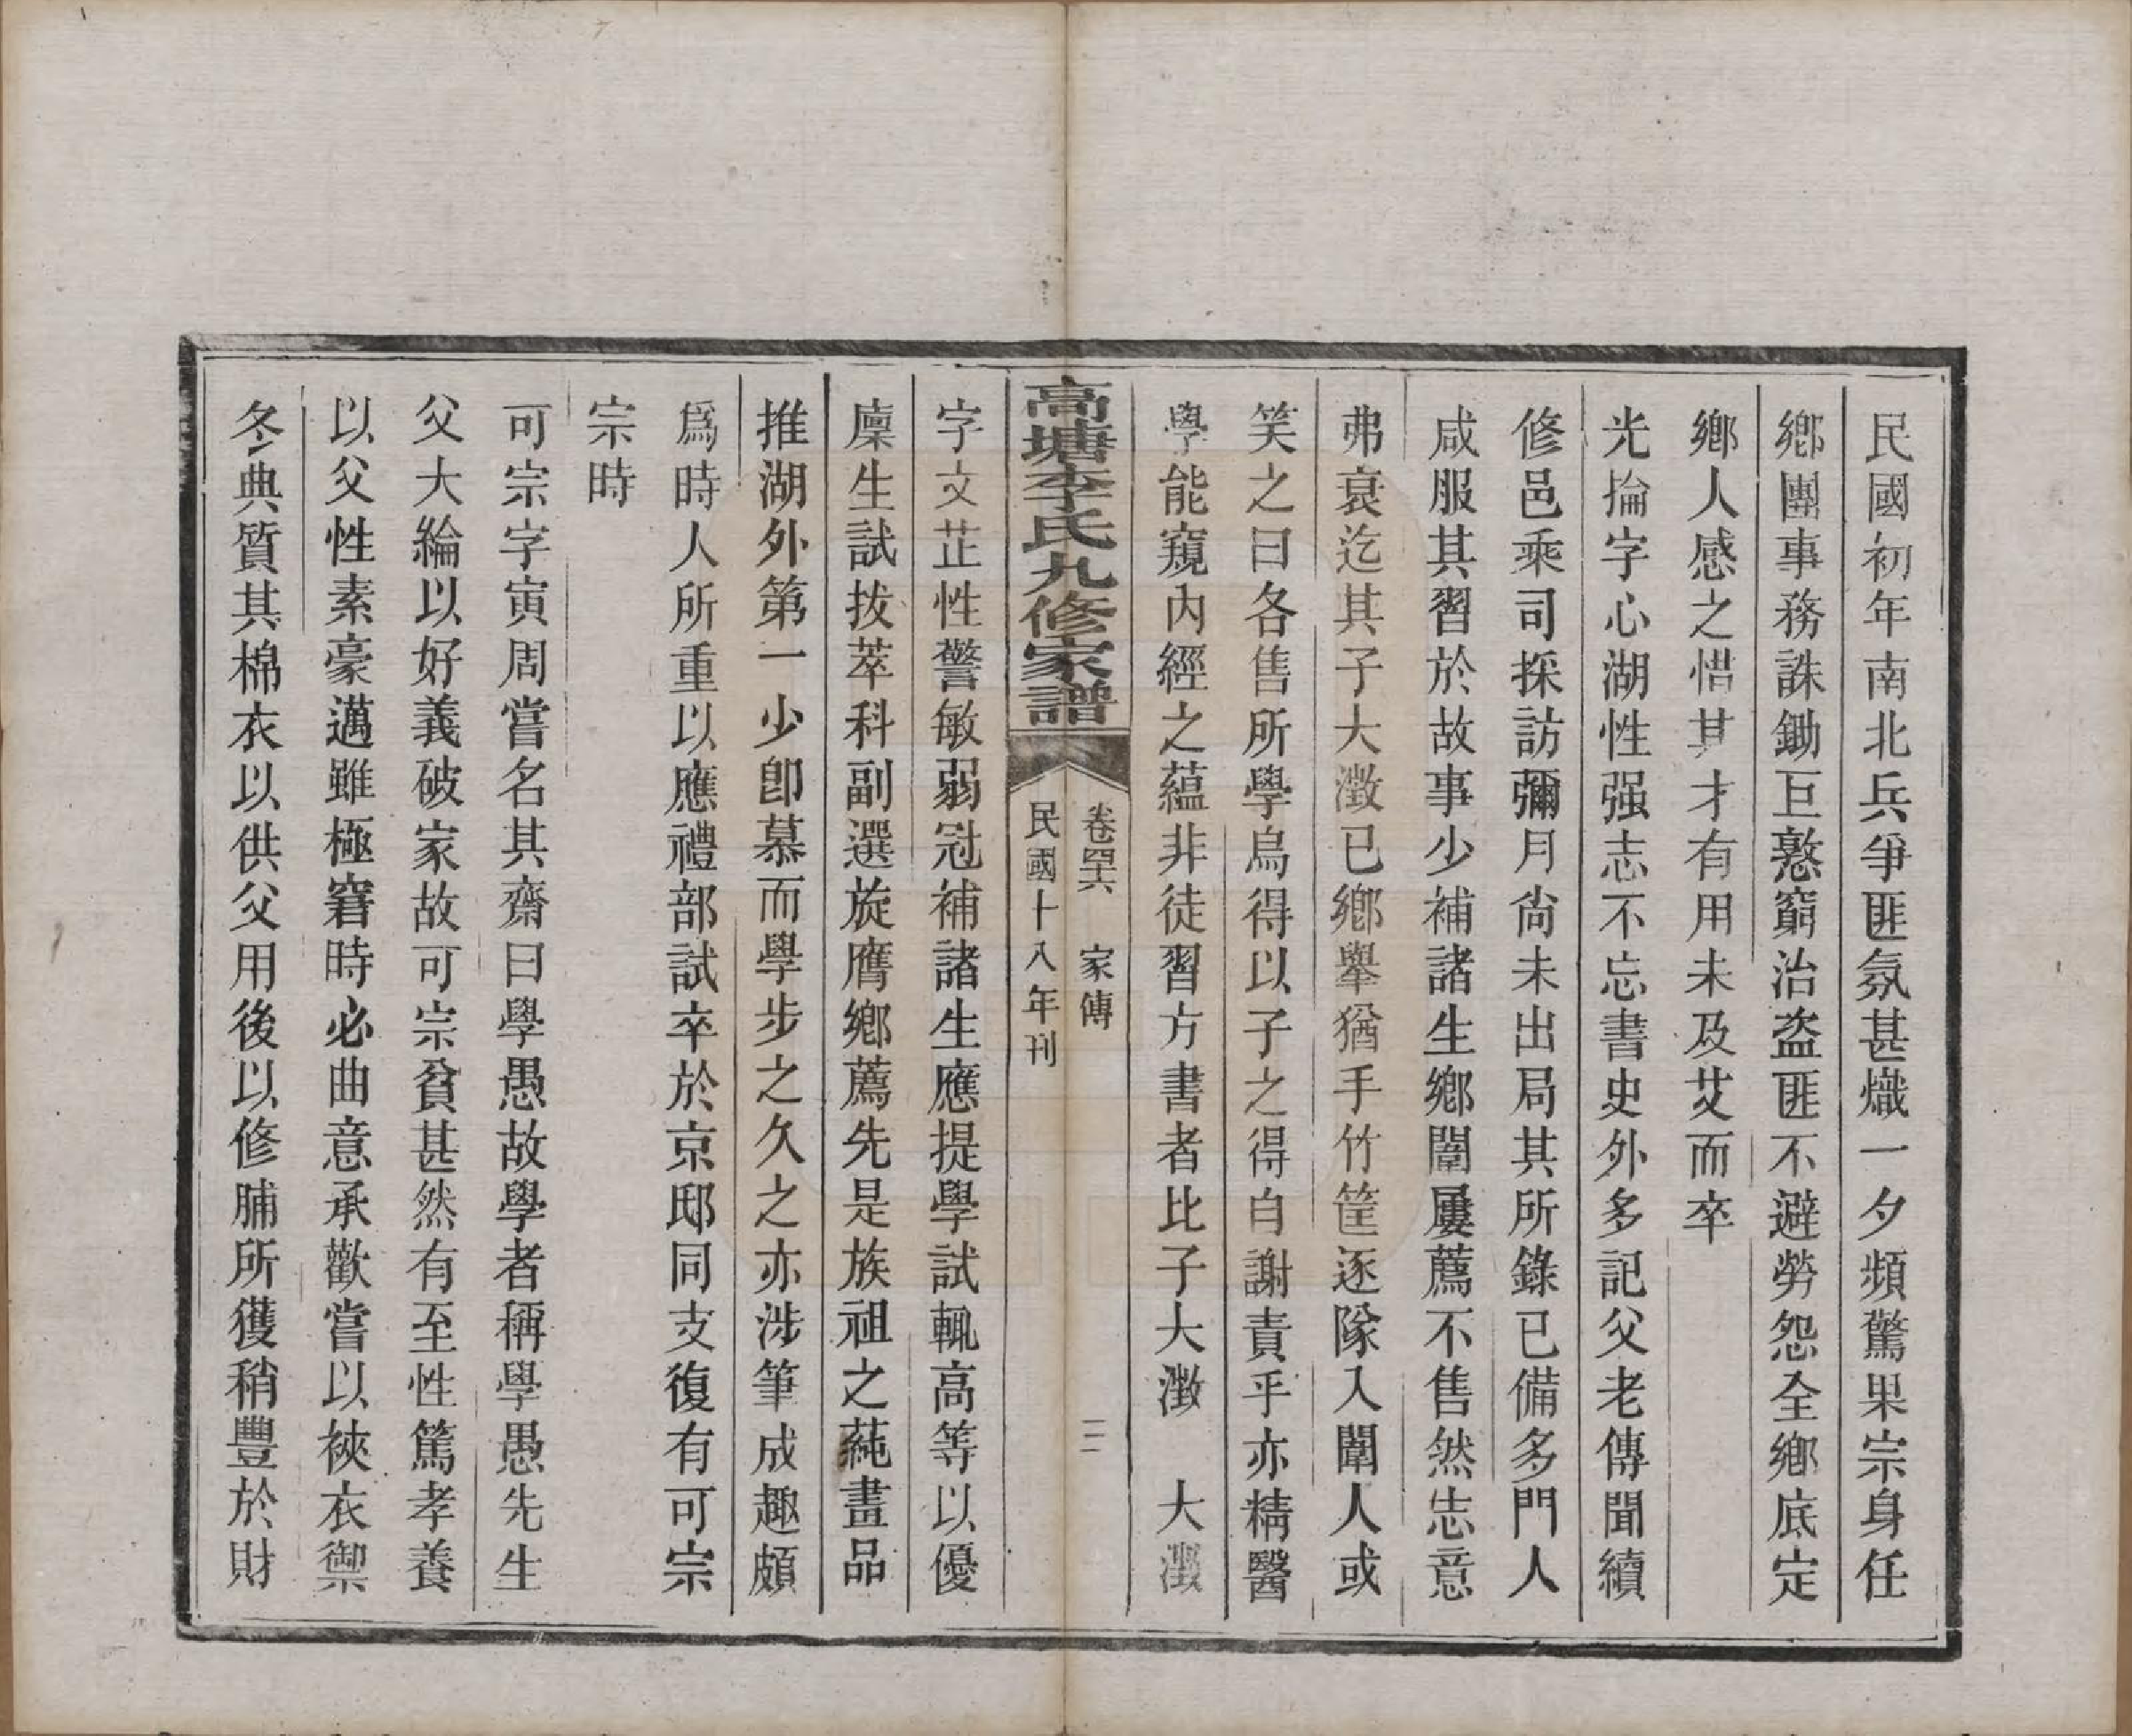 民國初年南北兵爭匪氛甚熾一夕頻驚果宗身任
鄉團事務誅鋤巨憝窮治盜匪不避勞怨全鄉底定
鄉人感之惜其才有用未及艾而卒
光掄字心湖性强志不忘書史外多記父老傳聞續
修邑乘司採訪彌月尙未出局其所錄已備多門人
咸服其習於故事少補諸生鄉闈屢薦不售然志意
弗衰迄其子大澂已鄉舉猶手竹筐逐隊入闈人或
笑之曰各售所學烏得以子之得自謝責乎亦精醫
學能窺內經之蘊非徒習方書者比子大澂　大瀓
高塘李氏九修家譜
卷四六　家傳　二
民國十八年刊
字文芷性警敏弱冠補諸生應提學試輒高等以優
廩生試拔萃科副選旋膺鄉薦先是族祖之蒓畫品
推湖外第一少卽慕而學步之久之亦涉筆成趣頗
爲時人所重以應禮部試卒於京邸同支復有可宗
宗時
可宗字寅周嘗名其齋曰學愚故學者稱學愚先生
父大綸以好義破家故可宗貧甚然有至性篤孝養
以父性素豪邁雖極窘時必曲意承歡嘗以裌衣禦
冬典質其棉衣以供父用後以修脯所獲稍豐於財